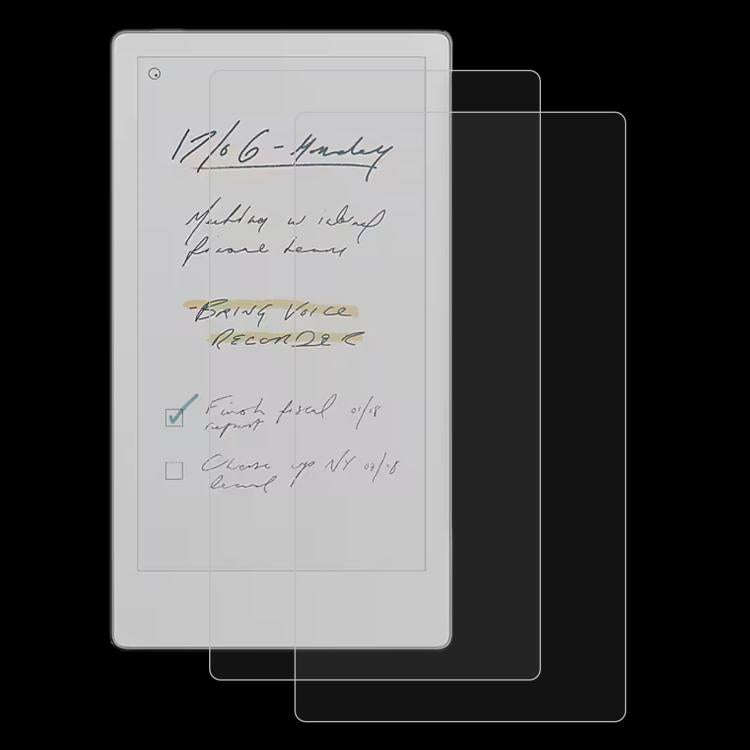 17/06 - Monday
Meeting w internal
finance team
- BRING VOICE
RECORDER
Finish fiscal 01/08
report
Chase up NY 02/08